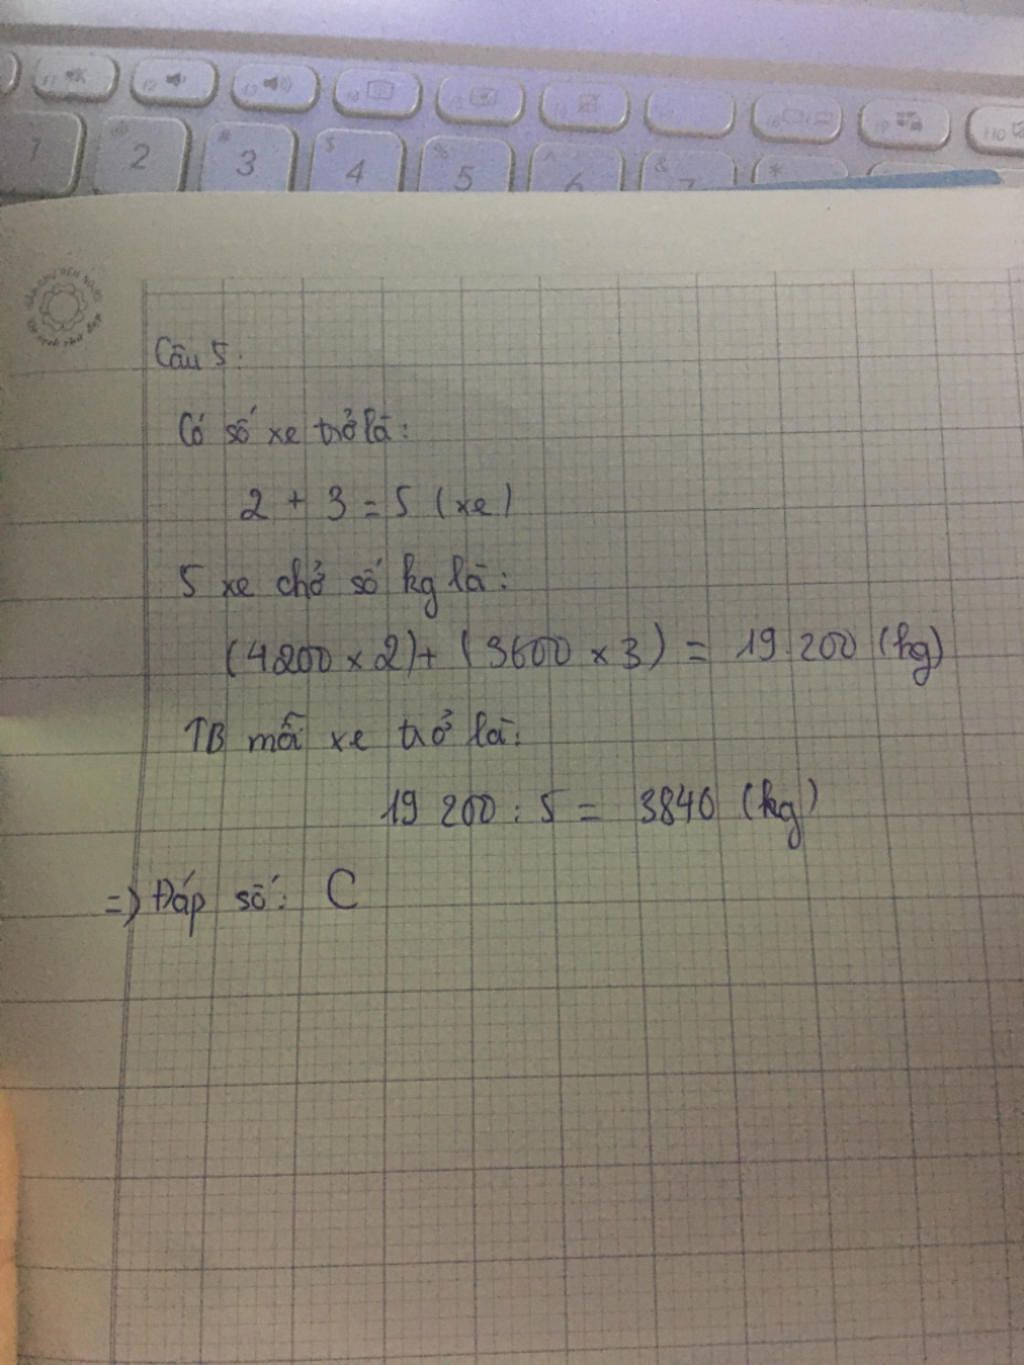 1
2
3
$
4
%
5
6
&
7
*
Câu 5:
Có số xe trở là:
2 + 3 = 5 (xe)
5 xe chở số kg là:
(4200 x 2) + (3600 x 3) = 19.200 (kg)
TB mỗi xe trở là:
19 200 : 5 = 3840 (kg)
=) Đáp số: C